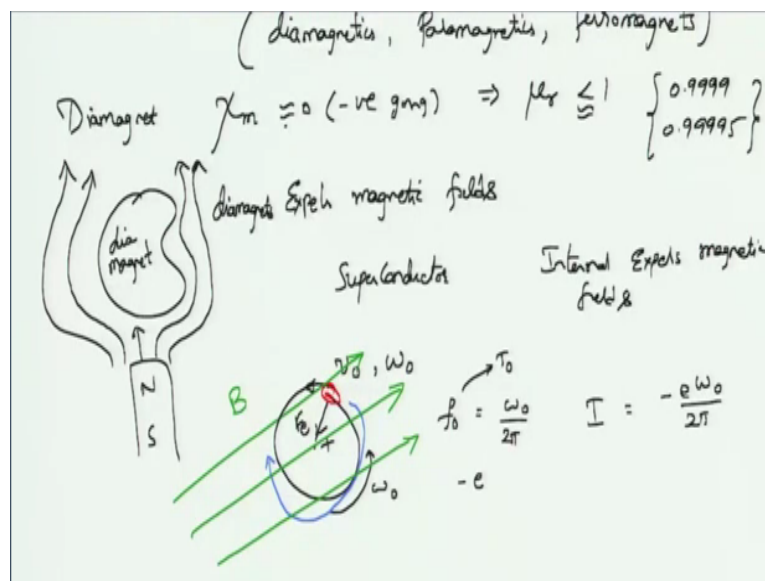 (diamagnetics, Paramagnetics, ferromagnets)
Diamagnet χm ≈ 0 (-ve) ⇒ μr ≤ 1 { 0.9999
0.99995 }
diamagnets Expels magnetic fields
dia
magnet
Superconductor
Internal Expels magnetic
fields
N
S
B
v0, ω0
Fe
+
ω0
T0
f0 = ω0/2π
I = -eω0/2π
-e